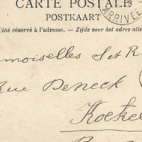 CARTE POSTALE
POSTKAART
ARRIVÉE
Côté réservé à l'adresse. — Zijde voor het adres alle
moiselles S et R
Rue Deneck
Koekel